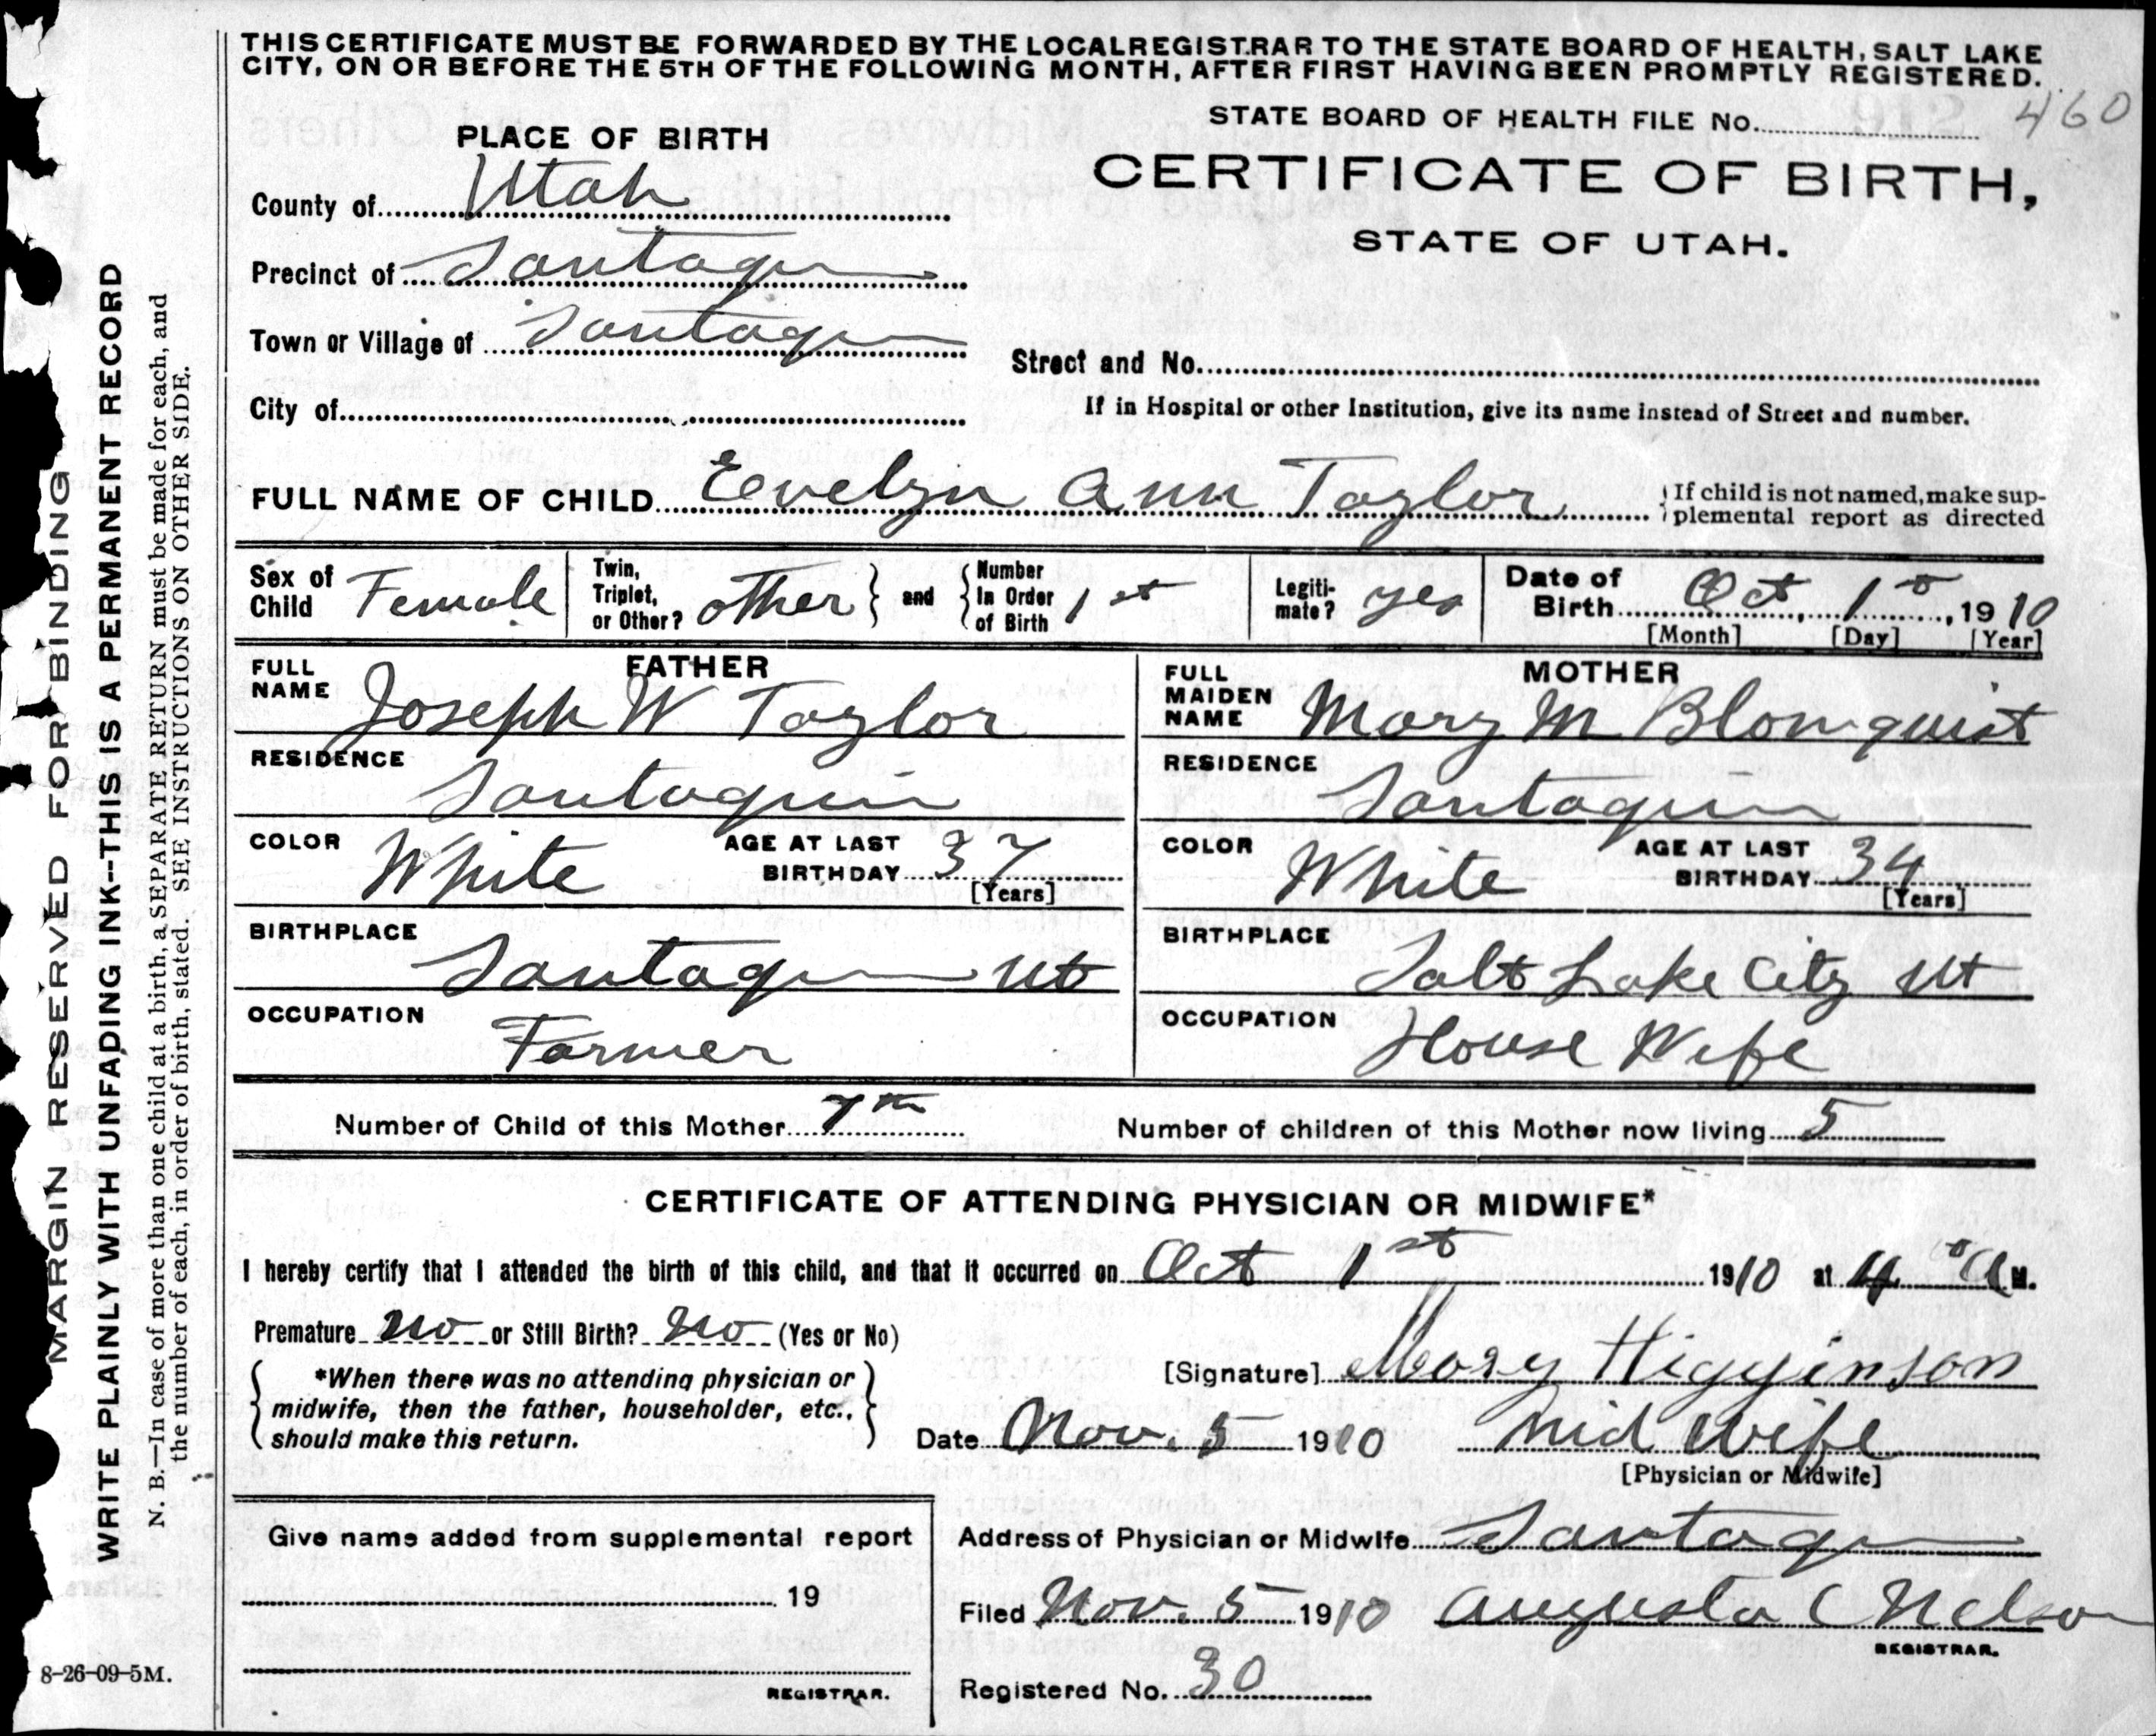 THIS CERTIFICATE MUST BE FORWARDED BY THE LOCAL REGISTRAR TO THE STATE BOARD OF HEALTH, SALT LAKE
CITY, ON OR BEFORE THE 5TH OF THE FOLLOWING MONTH, AFTER FIRST HAVING BEEN PROMPTLY REGISTERED.
STATE BOARD OF HEALTH FILE No. 460
PLACE OF BIRTH
CERTIFICATE OF BIRTH,
STATE OF UTAH.
County of Utah
Precinct of Santaquin
Town or Village of Santaquin
Street and No.
City of
If in Hospital or other Institution, give its name instead of Street and number.
FULL NAME OF CHILD Eevelyn Ann Taylor
If child is not named, make sup-
plemental report as directed
Sex of Child Female
Twin, Triplet, or Other? other and Number In Order of Birth 1st
Legiti-mate? yes
Date of Birth Oct, 1st, 1910
[Month] [Day] [Year]
FATHER
FULL NAME Joseph W Taylor
RESIDENCE Santaquin
COLOR White AGE AT LAST BIRTHDAY 37
[Years]
BIRTHPLACE Santaquin Ut
OCCUPATION Farmer
MOTHER
FULL MAIDEN NAME Mary M Blomquist
RESIDENCE Santaquin
COLOR White AGE AT LAST BIRTHDAY 34
[Years]
BIRTHPLACE Salt Lake City Ut
OCCUPATION House Wife
Number of Child of this Mother 7th
Number of children of this Mother now living 5
CERTIFICATE OF ATTENDING PHYSICIAN OR MIDWIFE*
I hereby certify that I attended the birth of this child, and that it occurred on Oct 1st 1910 at 4 A M.
Premature no or Still Birth? no (Yes or No)
*When there was no attending physician or
midwife, then the father, householder, etc.,
should make this return.
[Signature] Mary Higginson
Date Nov. 5 1910 Mid Wife
[Physician or Midwife]
Give name added from supplemental report
19
REGISTRAR.
Address of Physician or Midwife Santaquin
Filed Nov. 5 1910 Augusta C Nelson
REGISTRAR.
Registered No. 30
MARGIN RESERVED FOR BINDING
WRITE PLAINLY WITH UNFADING INK--THIS IS A PERMANENT RECORD
N. B.—In case of more than one child at a birth, a SEPARATE RETURN must be made for each, and
the number of each, in order of birth, stated. SEE INSTRUCTIONS ON OTHER SIDE.
8-26-09-5M.